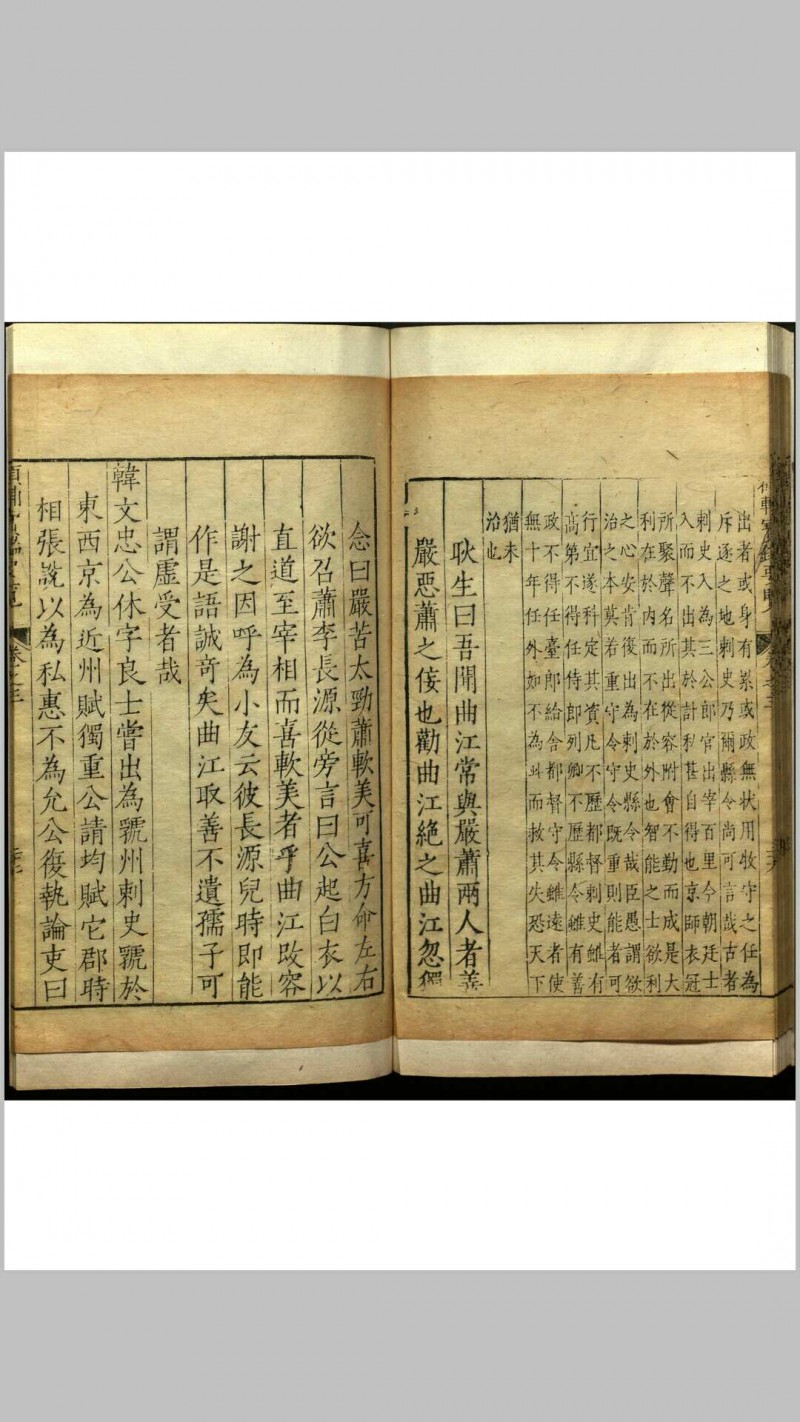 出者或身有累或政無状用牧守之任為
斥逐之地刺史乃爾縣令尚可言哉古者
刺史入為三公郎官出宰百里今朝廷士
入而不出其於計私甚自得也京師衣冠
所聚聲名所出從容附會不勤而成是大
利在於内而不在於外也智能之士欲利
之心安肯復出為刺史縣令哉臣愚謂欲
治之本莫若重守令守令既重則能者可
行宜遂科定其資凡不歷都督刺史雖有
高第不得任侍郎列卿不歷縣令雖有善
政不得任臺郎給舍都督守令雖遠者使
無十年任外如不為斗而救其失恐天下
猶未
洽也
耿生曰吾聞曲江常與嚴蕭兩人者善
嚴惡蕭之佞也勸曲江絶之曲江忽獨
念曰嚴苦太勁蕭軟美可喜方命左右
欲召蕭李長源從旁言曰公起白衣以
直道至宰相而喜軟美者乎曲江改容
謝之因呼為小友云彼長源兒時即能
作是語誠竒矣曲江取善不遺孺子可
謂虛受者哉
韓文忠公休字良士嘗出為虢州刺史虢於
東西京為近州賦獨重公請均賦它郡時
相張說以為私惠不為允公復執論吏曰